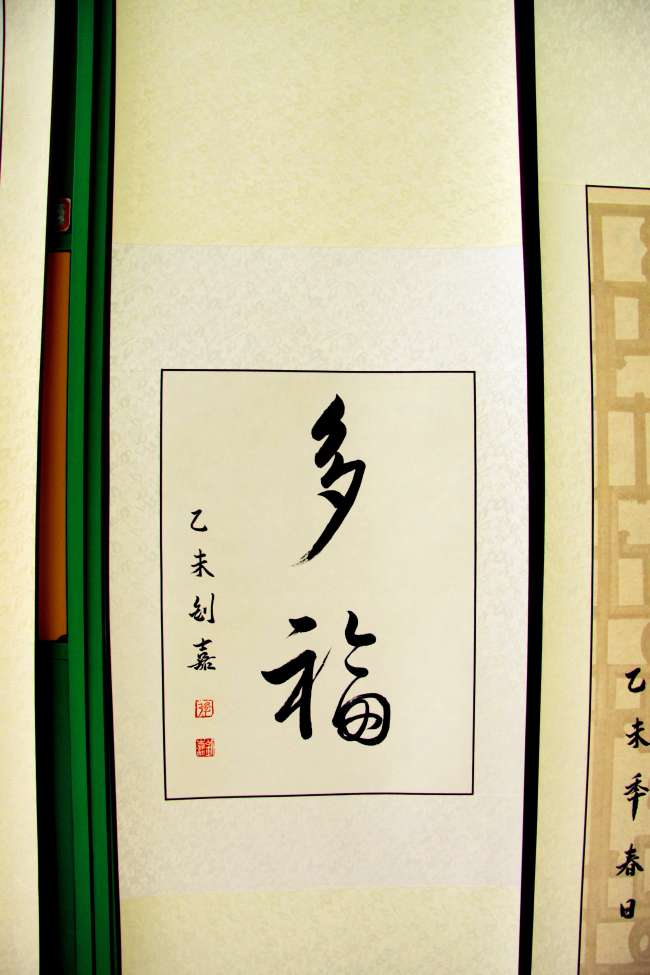 多福
乙未钊嘉
乙未季春日